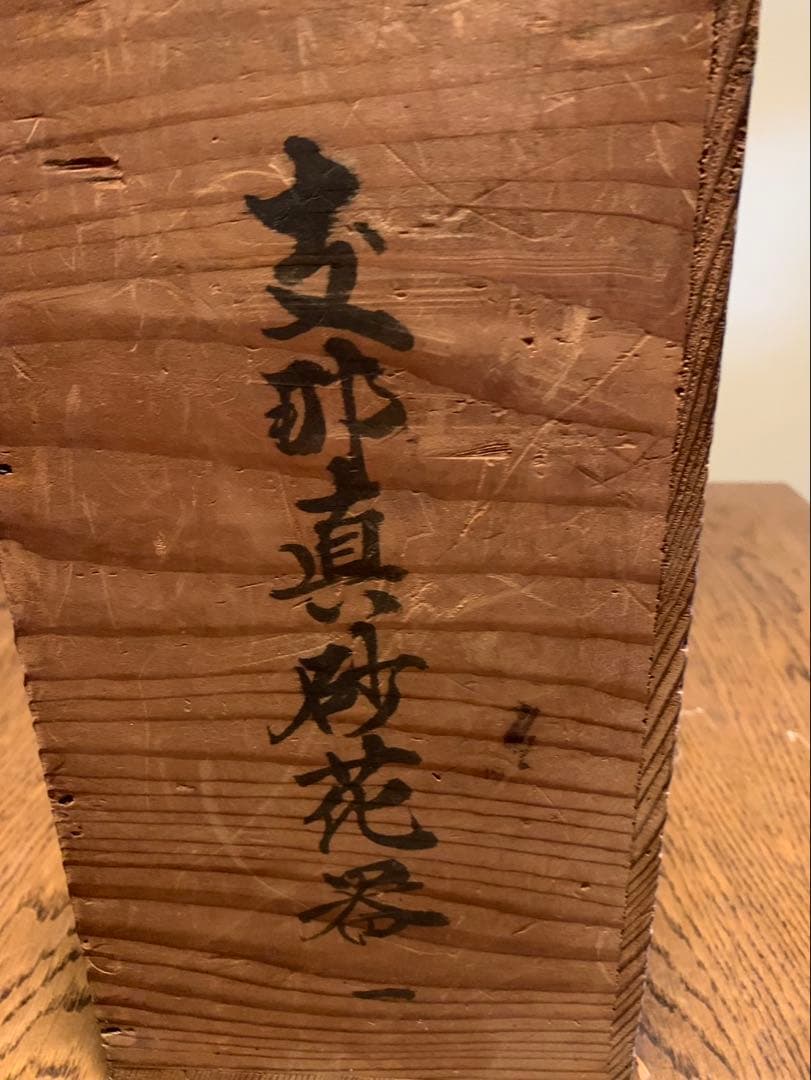 支那真砂花器一